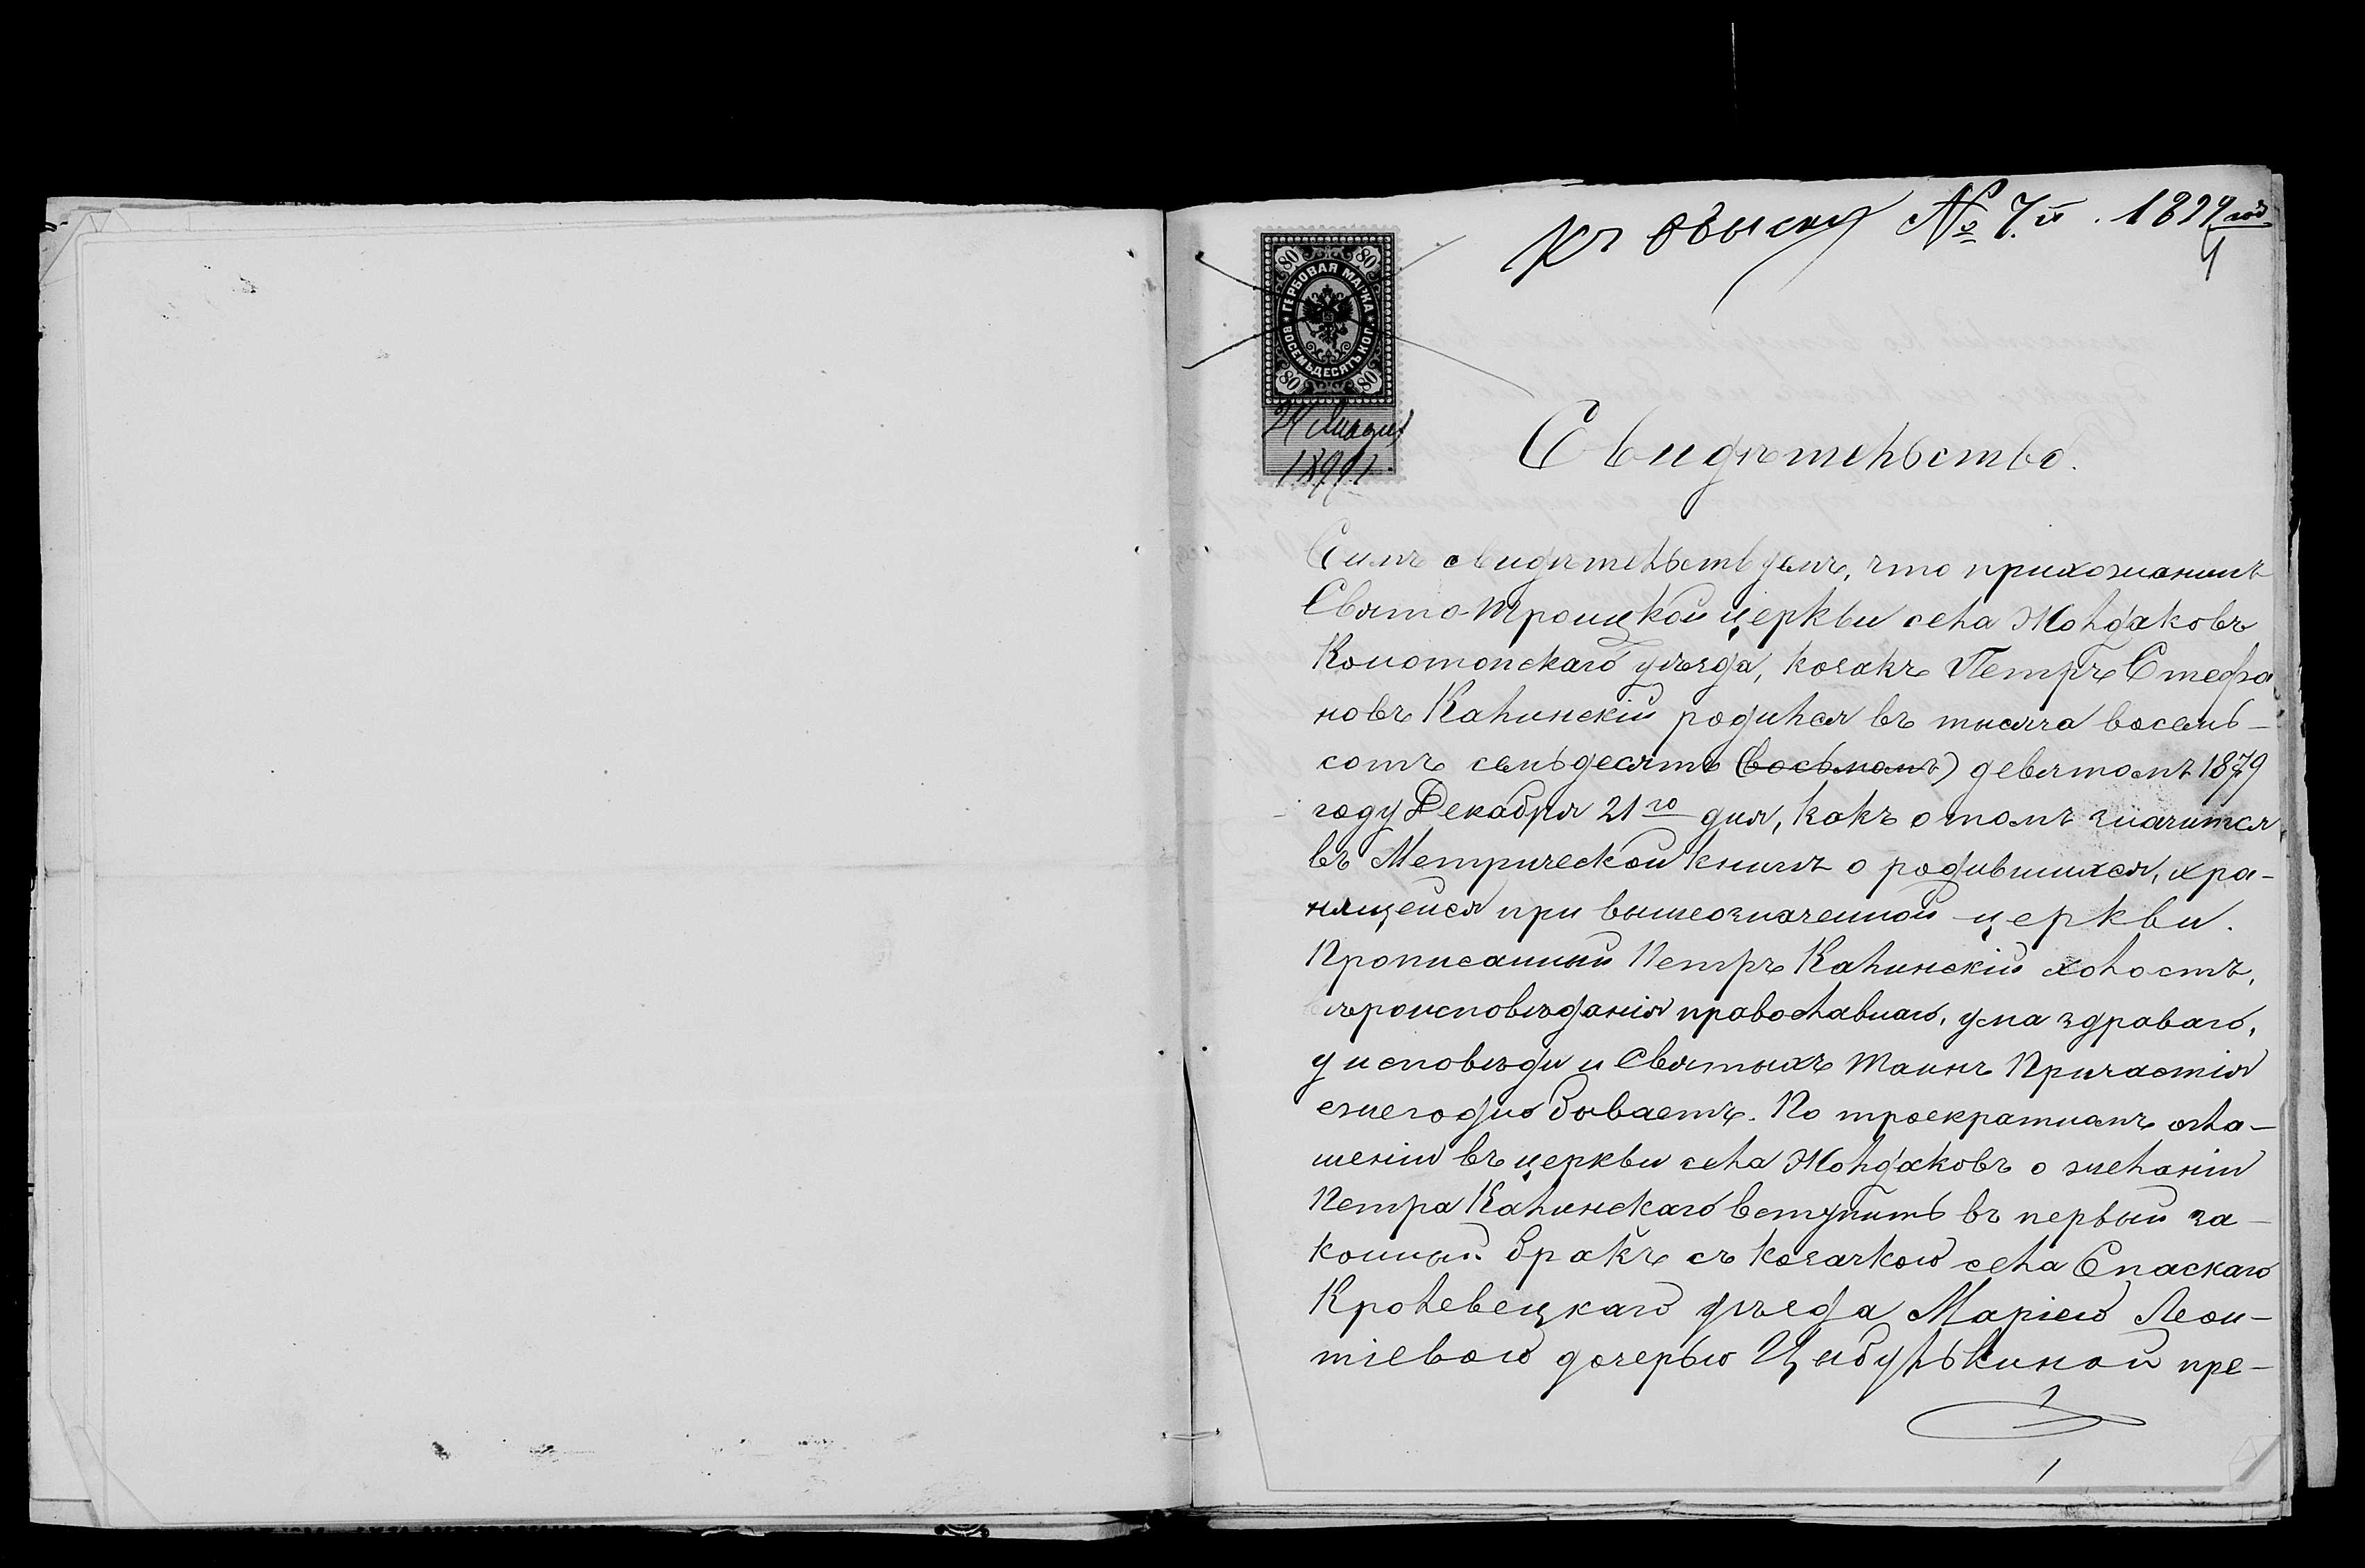 Къ обыску № 7й. 1899 год.
4
80 80
ГЕРБОВАЯ МАРКА
ВОСЕМЬДЕСЯТЪ КОП.
80 80
1899 г.
Свидѣтельство.
Симъ свидѣтельствуемъ, что прихожанинъ
Свято-Троицкой церкви села Жолдаковъ
Конотопскаго уѣзда, козакъ Петръ Стефа
новъ Калинскій родился въ тысяча восемь-
сотъ семьдесятъ (восьмомъ) девятомъ 1879
году Декабря 21го дня, какъ о томъ значится
въ Метрической книгѣ о родившихся, хра-
нящейся при вышеозначенной церкви.
Прописанный Петръ Калинскій холостъ,
вѣроисповѣданія православнаго, ума здраваго,
у исповѣди и Святыхъ Таинъ Причастія
ежегодно бываетъ. По троекратномъ огла-
шеніи въ церкви села Жолдаковъ о желаніи
Петра Калинскаго вступить въ первый за-
конный бракъ съ козачкою села Спаскаго
Кролевецкаго уѣзда Маріею Леон-
тіевою дочерью Цыбулькиной пре-